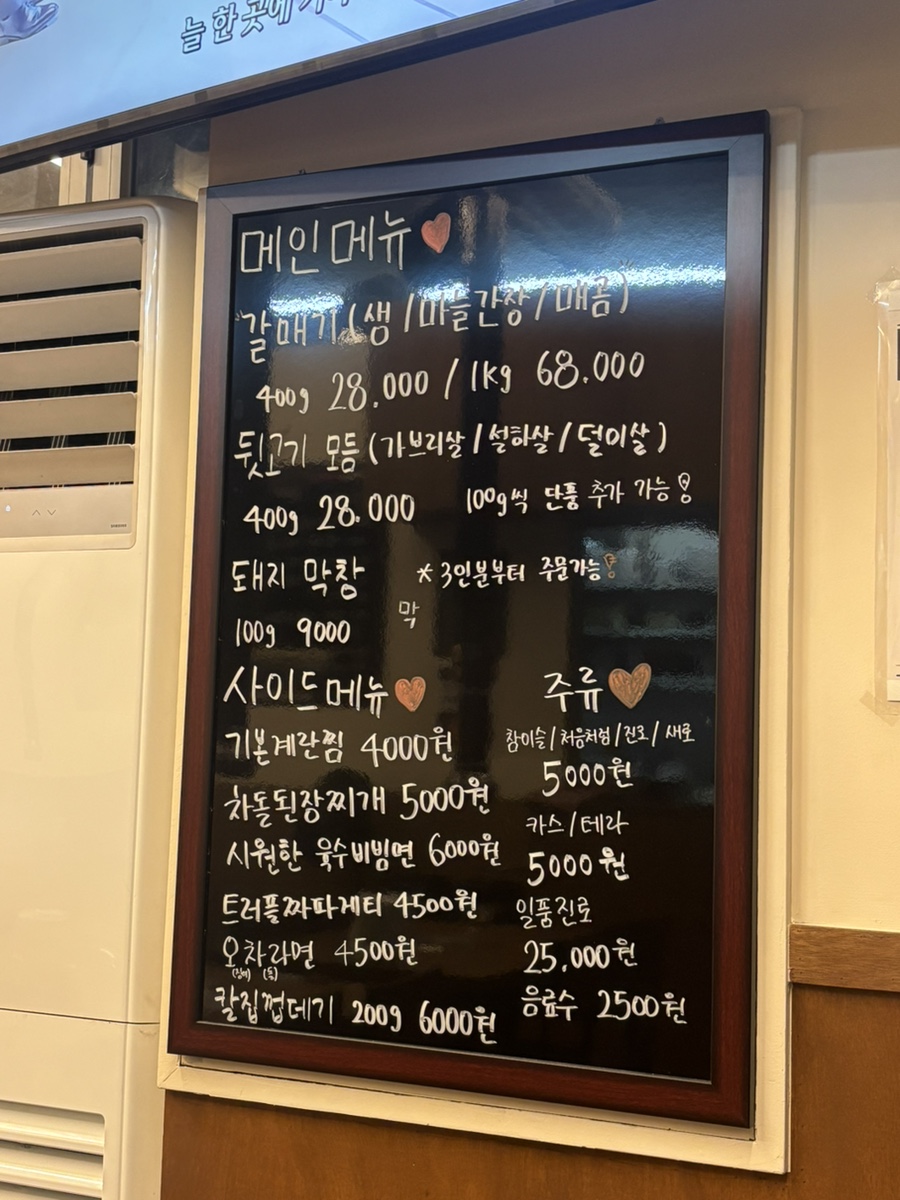 늘 한 곳에
메인 메뉴
"갈매기(생/마늘간장/매콤)"
400g 28.000 / 1kg 68.000
뒷고기 모듬 (가브리살/설하살/덜미살)
400g 28.000 100g씩 단품 추가 가능!
돼지 막창 * 3인분부터 주문가능!
막
100g 9000
사이드메뉴
기본계란찜 4000원
차돌된장찌개 5000원
시원한 육수비빔면 6000원
트러플짜파게티 4500원
오차라면 4500원
(징어) (돌)
칼집껍데기 200g 6000원
주류
참이슬/처음처럼/진로/새로
5000원
카스/테라
5000원
일품진로
25,000원
음료수 2500원
SAMSUNG